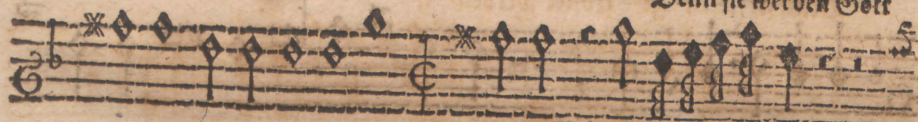 Denn sie werden Gott
5